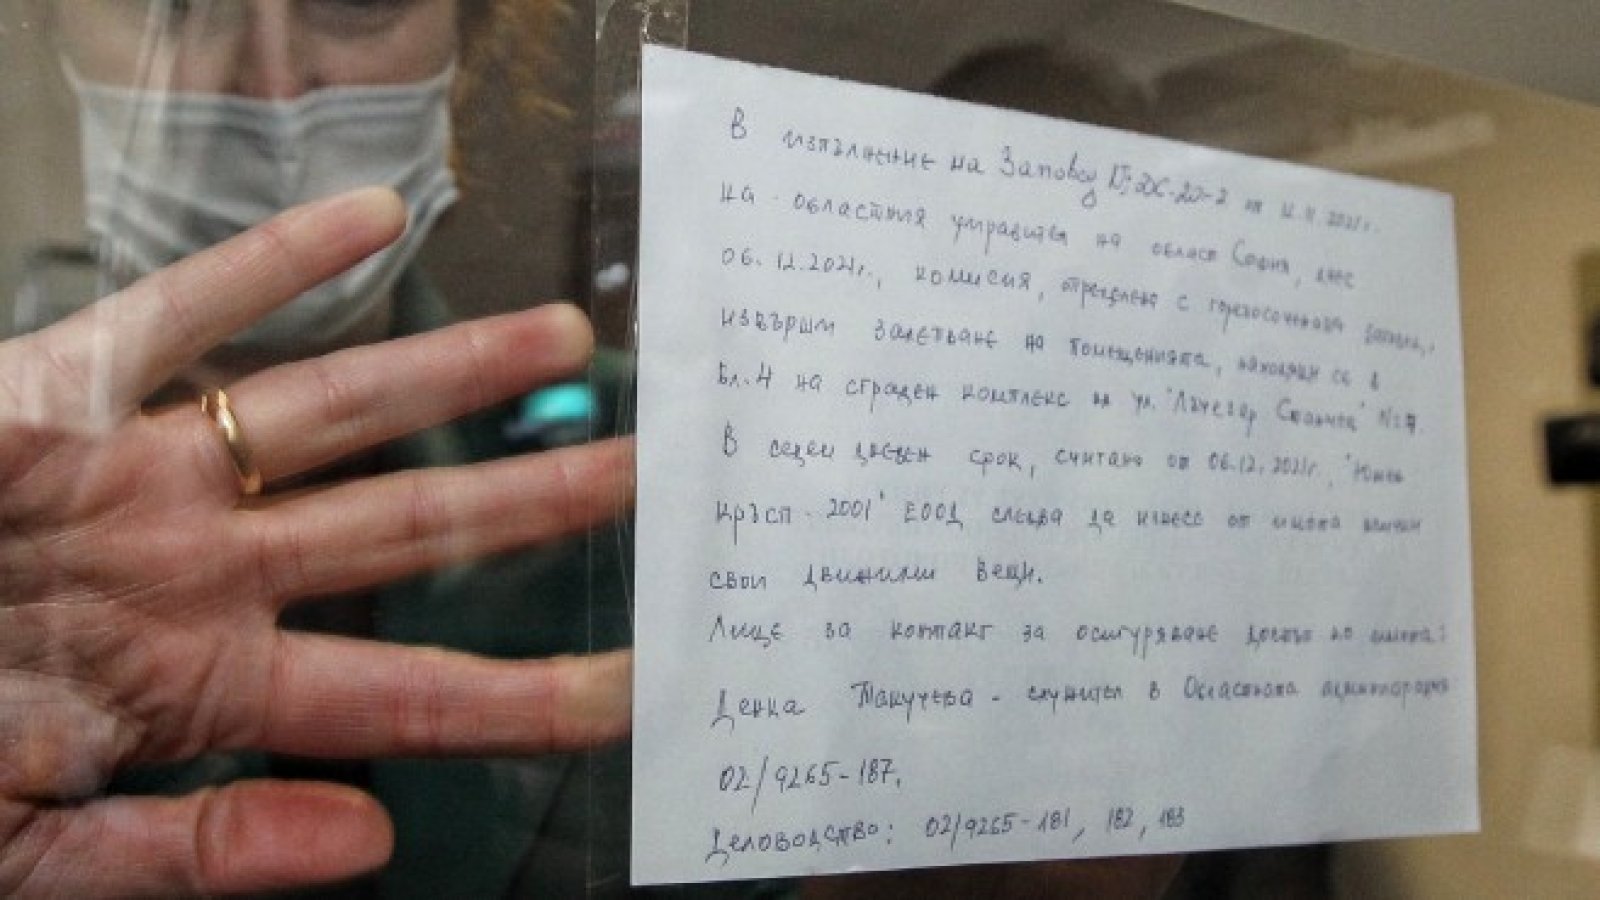 В изпълнение на Заповед № ДС-20-2 от 12.11.2021г.
на областния управител на област София, днес
06.12.2021г., комисия, определена с горепосочената заповед,
извърши запечатване на помещенията, находящи се в
бл.4 на сграден комплекс на ул. "Лъчезар Станчев" №7.
В седем дневен срок, считано от 06.12.2021г., "Юнион
кръсп - 2001" ЕООД следва да изнесе от имота всички
свои движими вещи.
Лице за контакт за осигуряване достъп до имота:
Денка Такучева - служител в Областната администрация
02/9265-187.
Деловодство: 02/9265-181, 182, 183